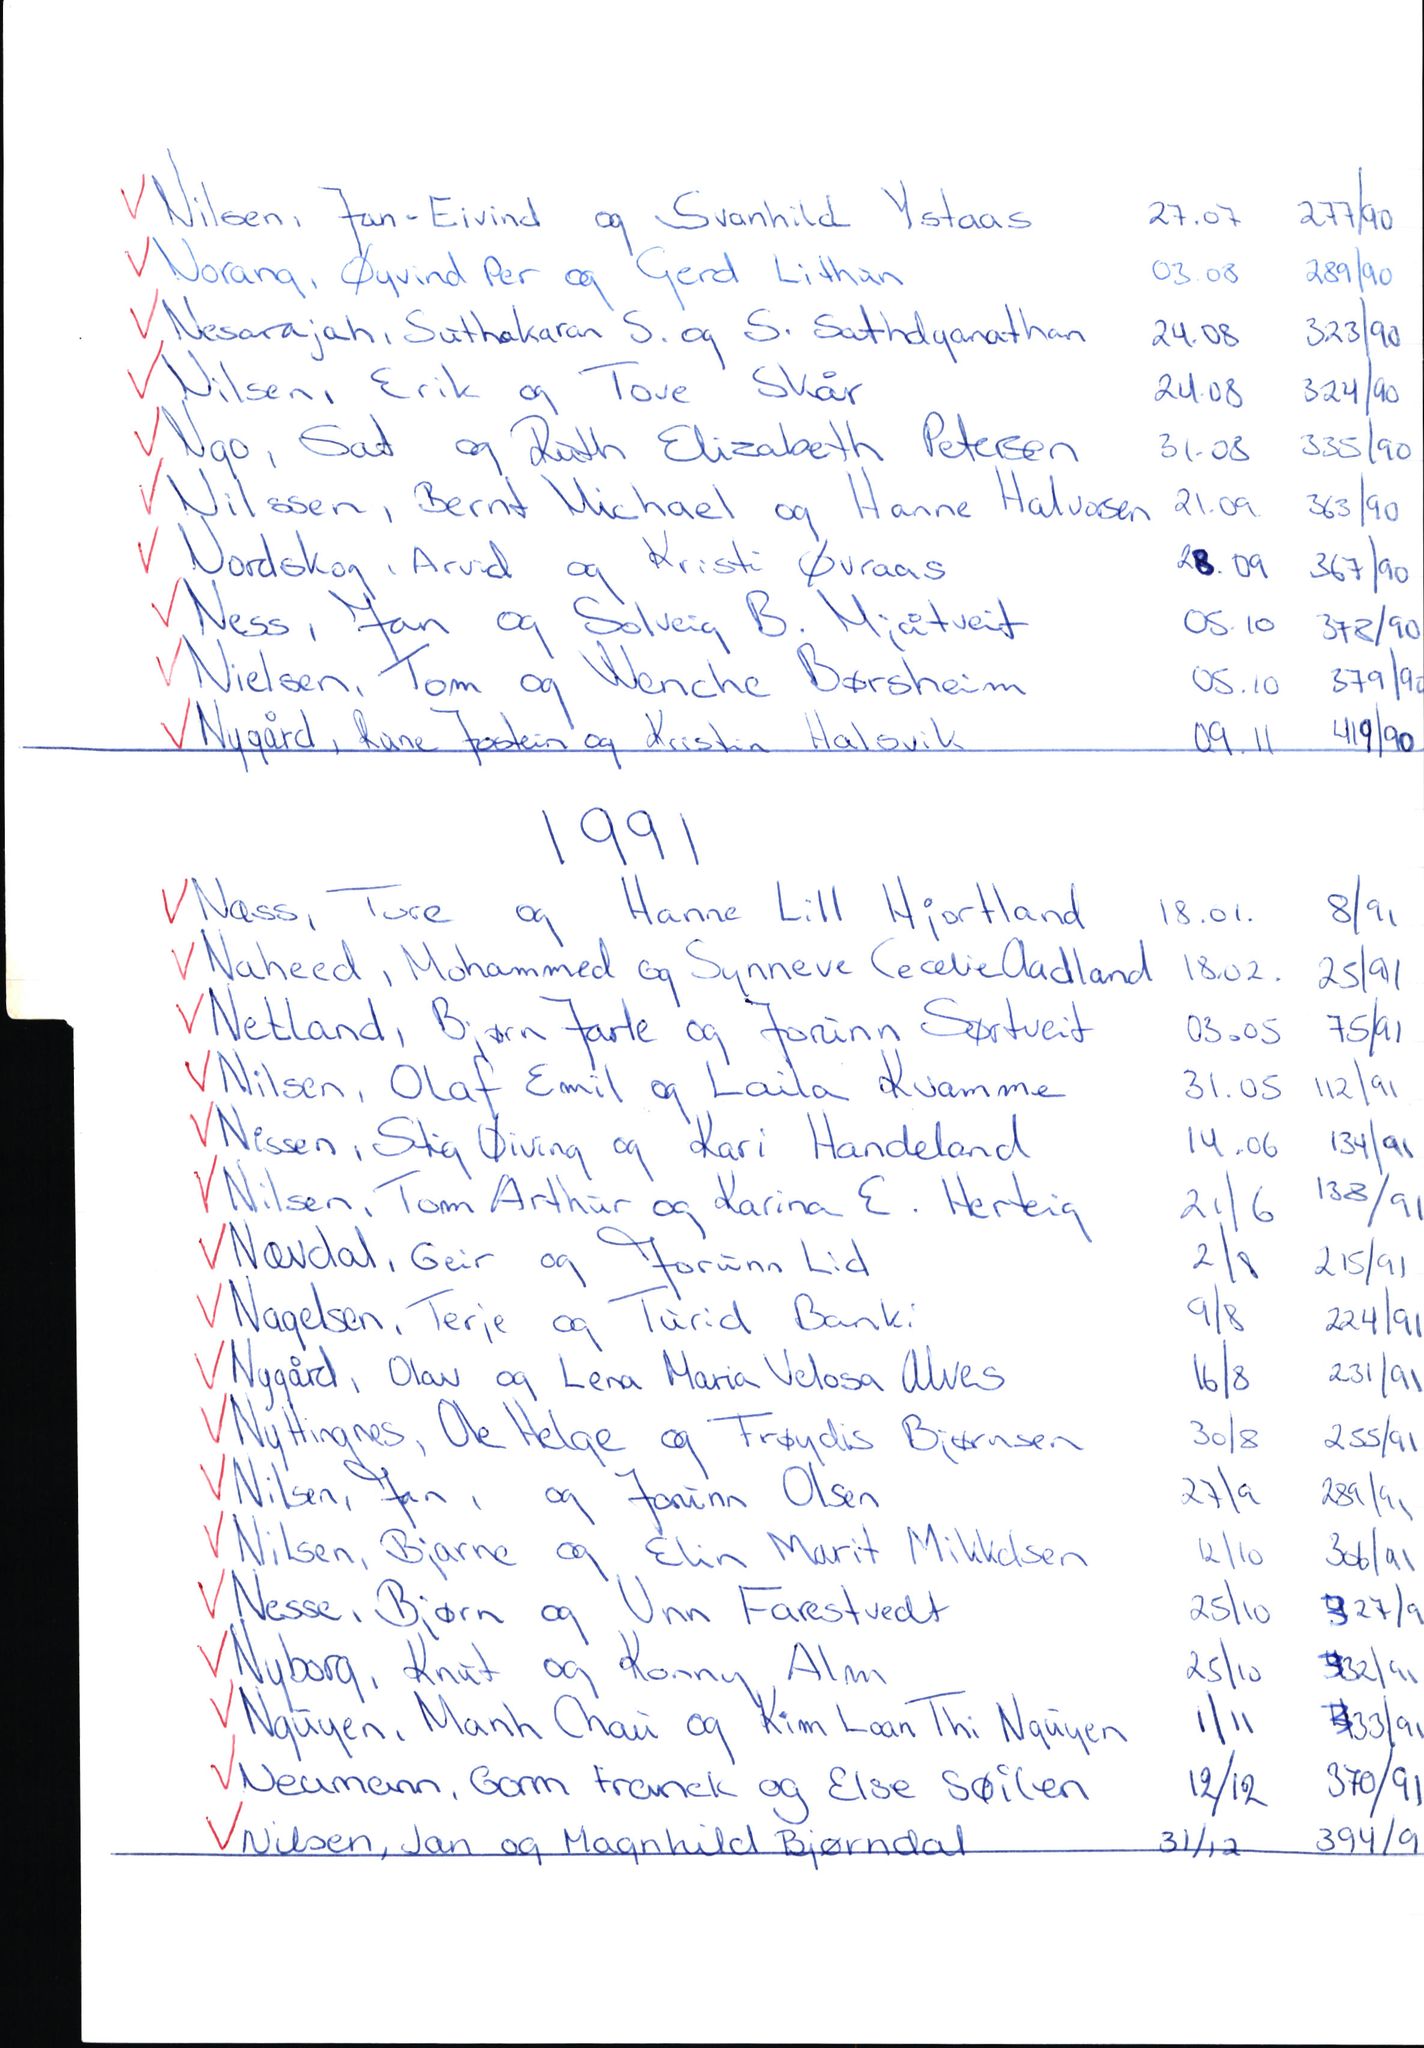 Nilsen, Jan-Eivind og Svanhild Ystaas 27.07 277/90
Norang, Øyvind Per og Gerd Lithun 03.08 289/90
Nesarajah, Suthakaran S. og S. 24.08 323/90
Nilsen, Erik og Tove Skår 24.08 324/90
Ngo, Sat og Ruth Elizabeth Petersen 31.08 335/90
Nilssen, Bernt Michael og Hanne Halvorsen 21.09 363/90
Nordskog, Arvid og Kristi Øvraas 28.09 367/90
Ness, Jan og Solveig B. Mjåtveit 05.10 378/90
Nielsen, Tom og Wenche Børsheim 05.10 379/90
Nygård, Rune Jostein og Kristin Halsvik 09.11 419/90
1991
Næss, Tore og Hanne Lill Hjortland 18.01. 8/91
Naheed, Mohammed og Synneve Cecelie Aadland 18.02. 25/91
Netland, Bjørn Jarle og Jorunn Sørtveit 03.05 75/91
Nilsen, Olaf Emil og Laila Kvamme 31.05 112/91
Nissen, Stig Øiving og Kari Handeland 14.06 134/91
Nilsen, Tom Arthur og Karina E. Herteig 21/6 138/91
Nævdal, Geir og Jorunn Lid 2/8 215/91
Nagelsen, Terje og Turid Banki 9/8 224/91
Nygård, Olav og Lena Maria Velosa Alves 16/8 231/91
Nyttingnes, Ole Helge og Frøydis Bjørnsen 30/8 255/91
Nilsen, Jan, og Jorunn Olsen 27/9 289/91
Nilsen, Bjarne og Elin Marit Mikkelsen 12/10 306/91
Nesse, Bjørn og Unn Farestvedt 25/10 327/9
Nyborg, Knut og Konny Alm 25/10 332/91
Nguyen, Manh Chau og Kim Loan Thi Nguyen 1/11 333/91
Neumann, Gorm Franck og Else Søilen 12/12 370/91
Nilsen, Jan og Magnhild Bjørndal 31/12 394/9